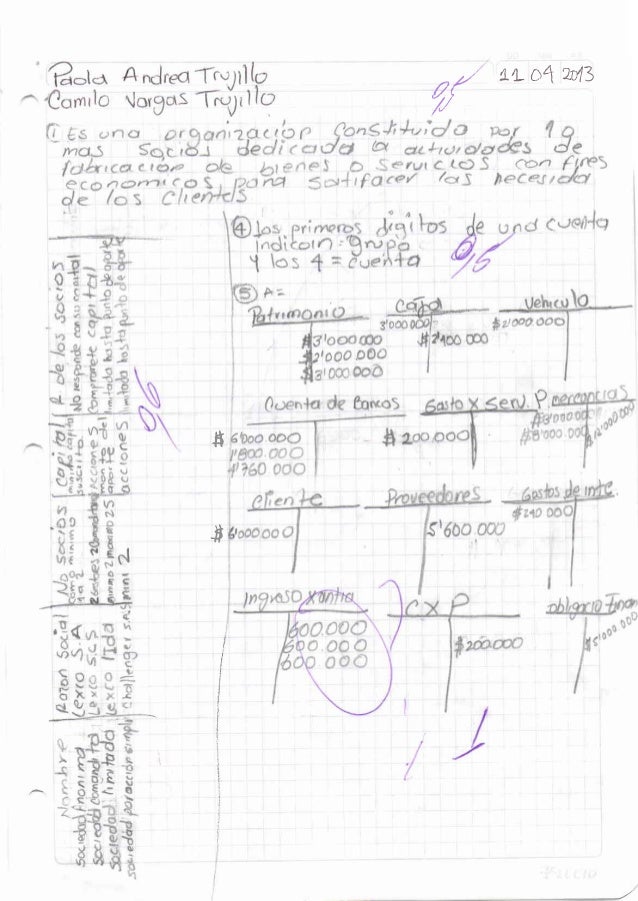 Paola Andrea Trujillo
11 04 2013
Camilo Vargas Trujillo
① Es una organización constituida por 1 o
mas socios dedicada la actividades de
fabricación de bienes o servicios con fines
economicos para satifacer las necesida
de los clientes
④ Los primeros digitos de una cuenta
indican = grupo
y los 4 = cuenta
⑤ A=
Patrimonio
$3'000 000
$2'000 000
$3'000 000
Caja
3'000 000
Vehiculo
$2'000.000
Cuenta de Bancos
$ 6'000 000
1'800.000
4'760 000
Gasto X Serv. P.
$ 200.000
mercancias
$8'000 000
Cliente
$6'000000
Proveedores
5'600.000
Gastos de inte.
$240 000
Ingreso X antia
600.000
600.000
600 000
C X P
$200.000
$5'000 000
Nombre
Sociedad Anonima
Sociedad comandita
Sociedad limitada
Sociedad por accion simpli
Razon Social
Lexco S.A
Lexco S.C.S
Lexco ltda
Challenger S.A.S
No Socios
como minimo
2 Gestores 2 Comanditario
minimo 2 maximo 25
mini 2
Capital
suscrito.
Acciones
monto del
aporte
acciones
R de los socios
No responde con su capital
Compromete capital
limitada hasta punto de aporte
limitada hasta punto de aporte